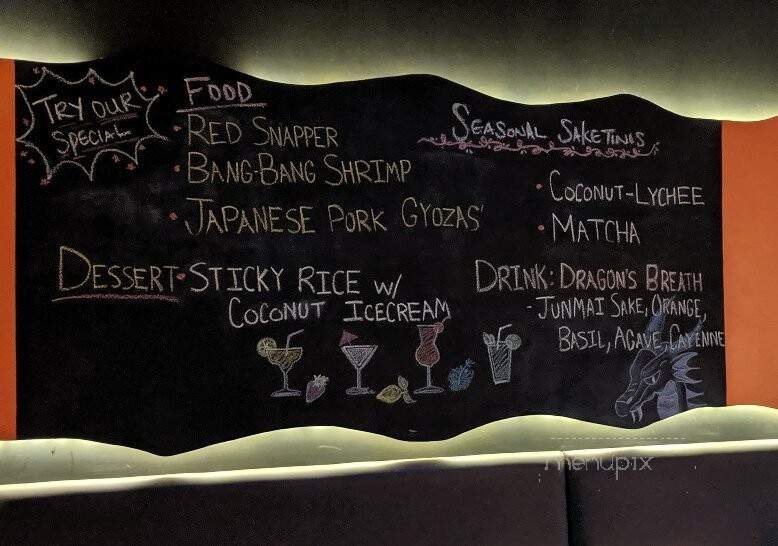 TRY OUR
SPECIAL
FOOD
• RED SNAPPER
• BANG-BANG SHRIMP
• JAPANESE PORK GYOZAS'
DESSERT • STICKY RICE W/
COCONUT ICECREAM
SEASONAL SAKETINIS
• COCONUT-LYCHEE
• MATCHA
DRINK: DRAGON'S BREATH
- JUNMAI SAKE, ORANGE,
BASIL, AGAVE, CAYENNE
menupix